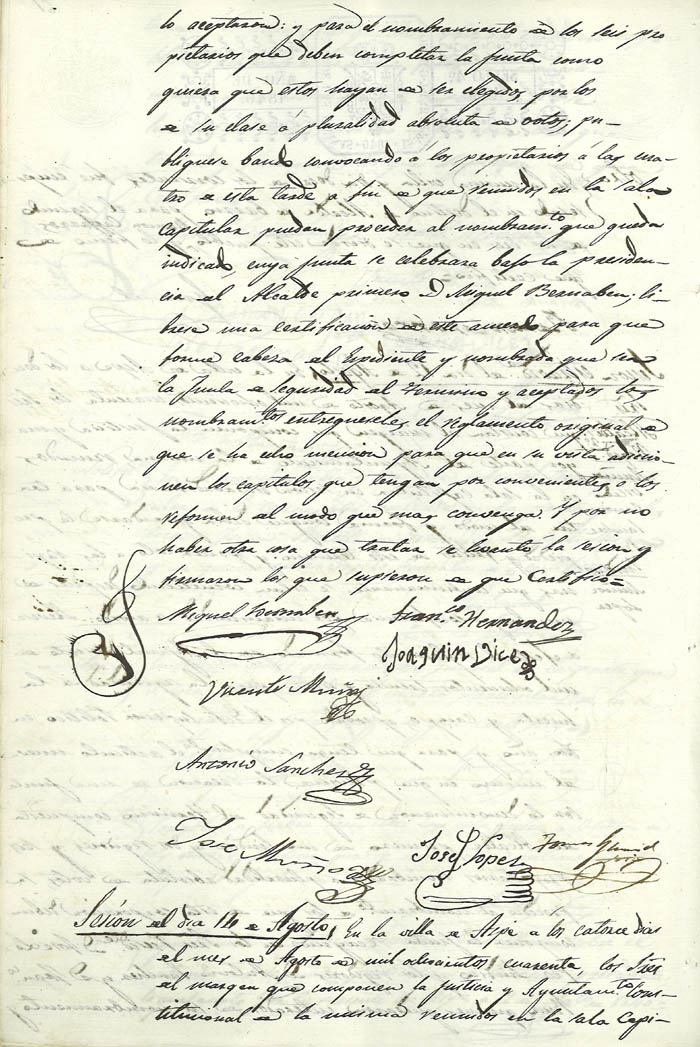 lo aceptaron: y para el nombramiento de los seis pro
pietarios que deben completar la Junta como
quiera que estos hayan de ser elegidos por los
de su clase á pluralidad absoluta de votos; pu-
bliquese bando convocando á los propietarios á las cua-
tro de esta tarde a fin de que reunidos en la sala
capitular puedan proceder al nombram.to que queda
indicado, cuya junta se celebrara bajo la presiden-
cia del Alcalde primero D Miguel Bernabeu; li-
brese una certificacion de este acuerdo para que
forme cabeza del Espediente y nombrada que sea
la Junta de seguridad del Termino y aceptados los
nombram.tos entreguesele el reglamento original de
que se ha echo mencion para que en su vista adicio-
nen los capitulos que tengan por convenientes, o los
reformen del modo que mas convenga. Y por no
haber otra cosa que tratar se levantó la sesion y
firmaron los que supieron de que Certifico=
Miguel Bernabeu Fran.co Hernandez
Joaquin Vicedo
Vicente Muñoz
Antonio Sanchez
Jose Muñoz Josef Lopez Tomas
Sesion del dia 14 de Agosto, En la villa de Aspe a los catorce dias
del mes de Agosto de mil ochocientos cuarenta, los Sres
del margen que componen la Justicia y Ayuntam.to Cons-
titucional de la misma reunidos en la sala Capi-